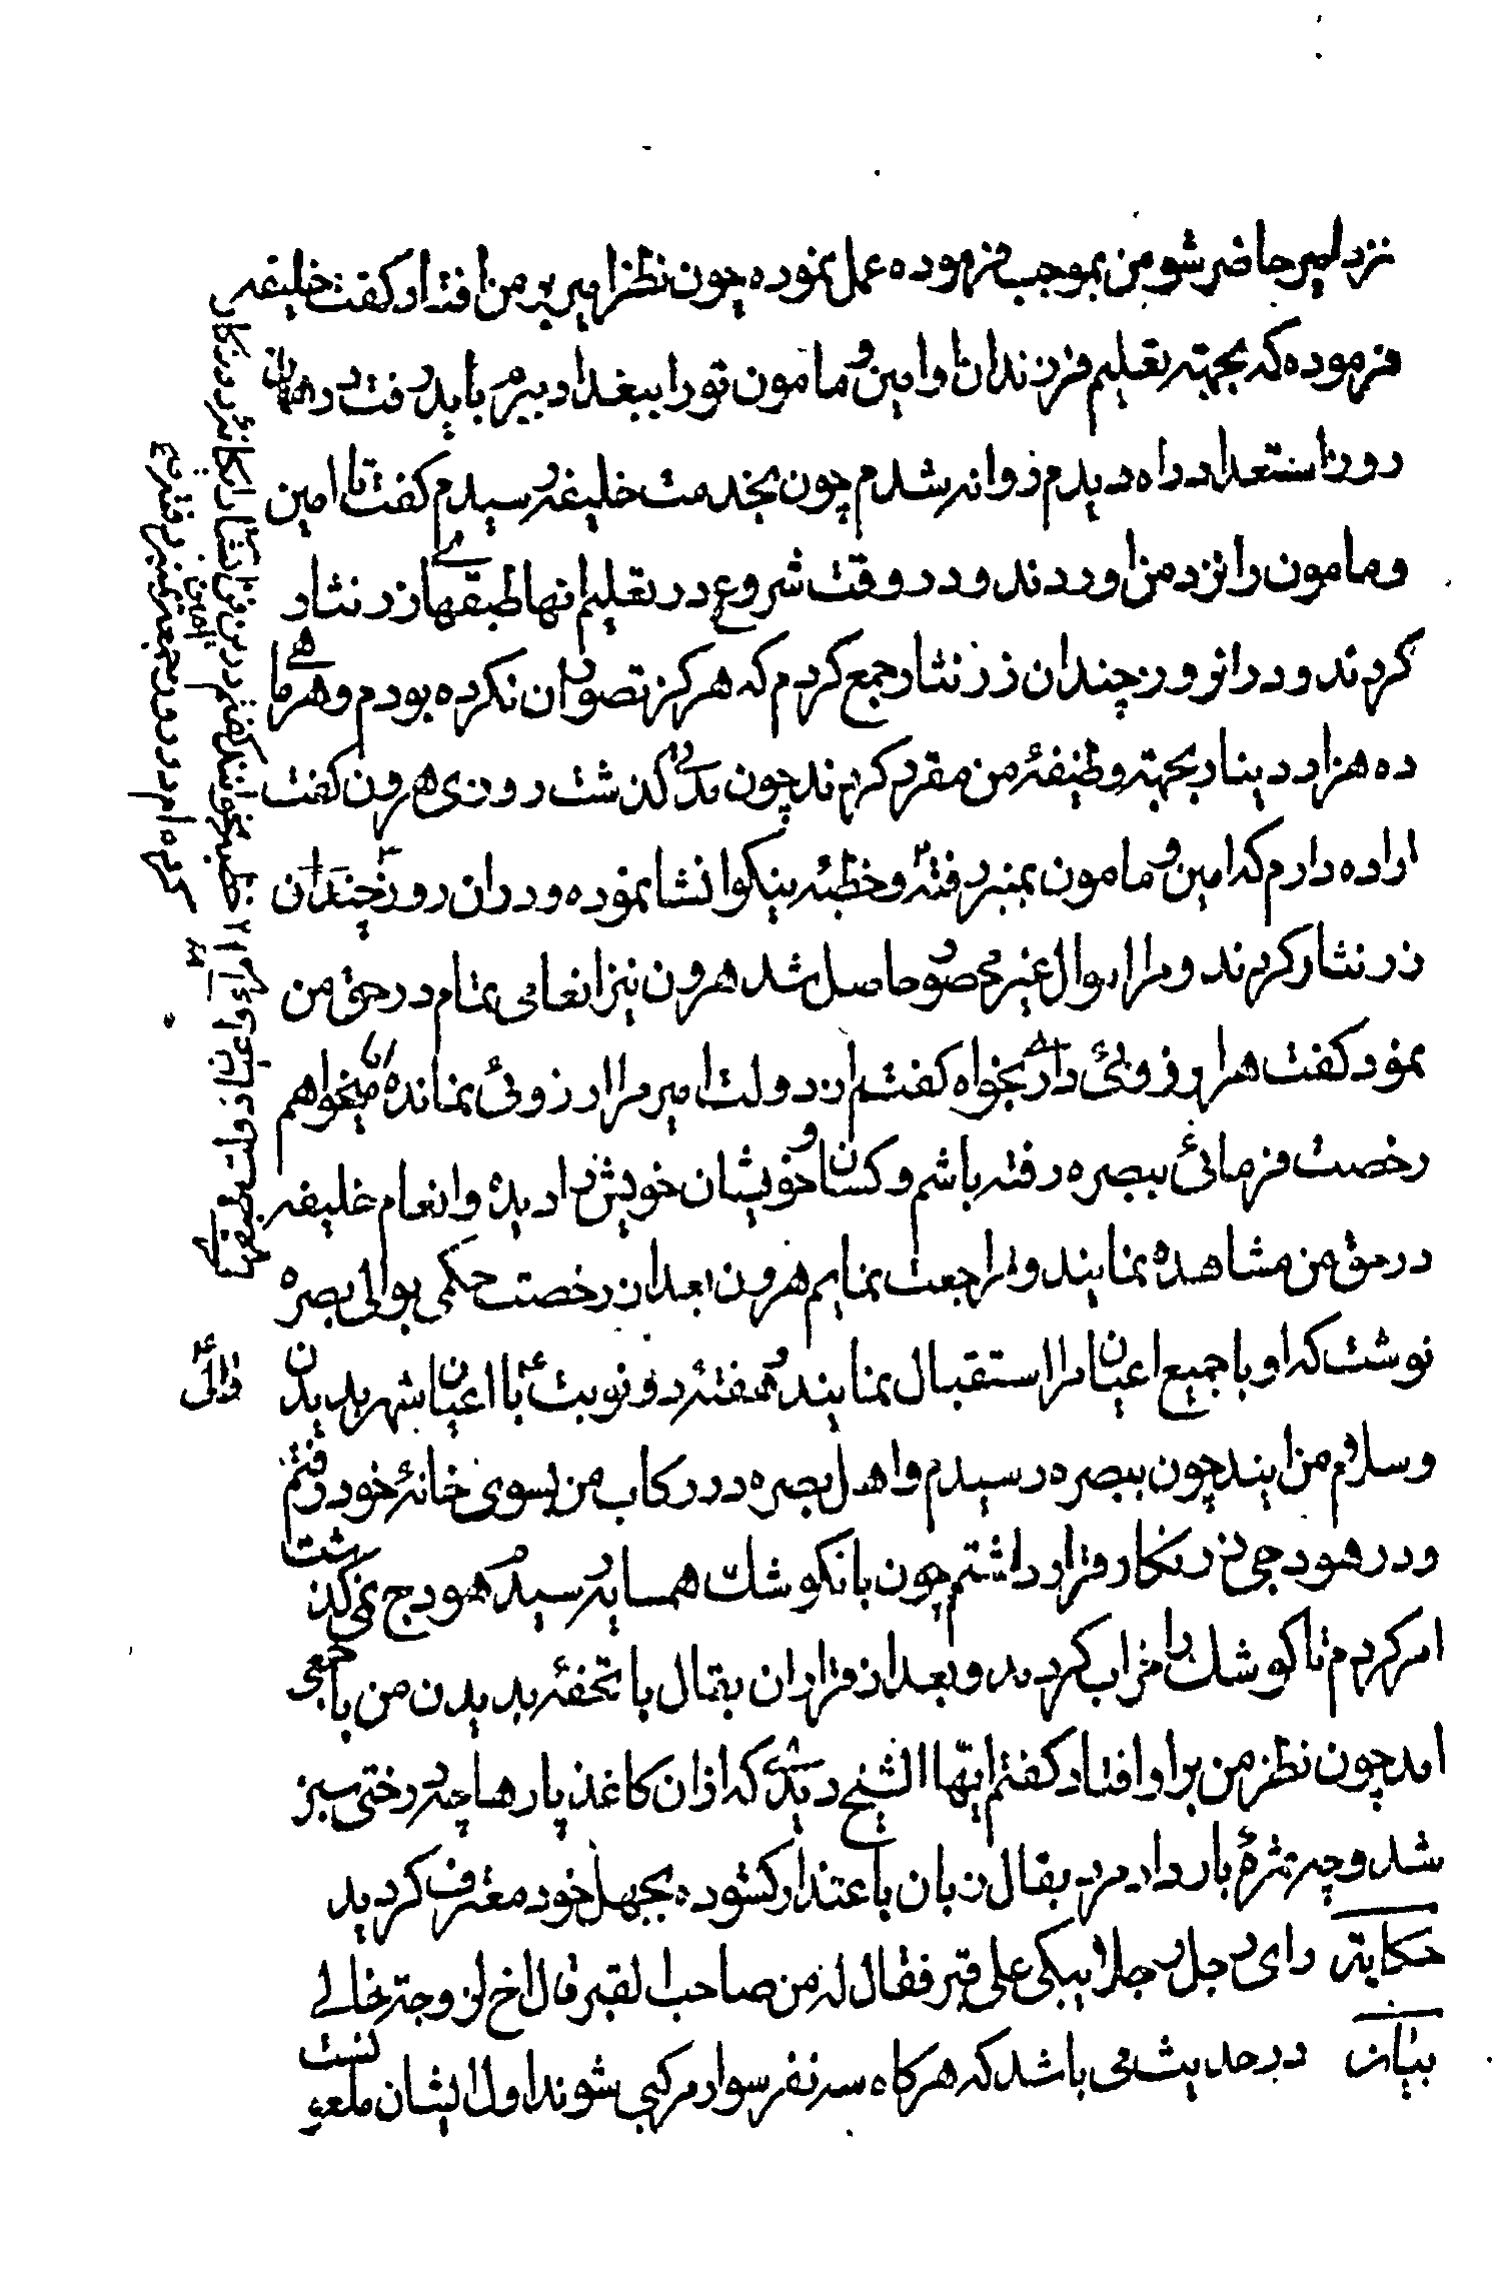 نزد امیر حاضر شو من بموجب فرموده عمل نموده چون نظر امیر بر من افتاد کفت خلیفه
فرموده که بجهته تعلیم فرزندان او امین و مامون تو را ببغداد ببرم باید رفت در همان
روز استعداد راه دیدم روانه شدم چون بخدمت خلیفه رسیدم کفت تا امین
و مامون را نزد من اوردند و در وقت شروع در تعلیم انها طبقهای زر نثار
کردند و در انروز چندان زر نثار جمع کردم که هرکز تصور ان نکرده بودم و هر ماهی
ده هزار دینار بجهته وظیفهٔ من مقرر کردند چون مدتی کذشت روزی هرون کفت
اراده دارم که امین و مامون بمنبر رفته و خطبه نیکو انشا نموده و در ان روز چندان
زر نثار کردند و مرا اموال غیر محصور حاصل شد هرون نیز انعامی تمام در حق من
نمود کفت هر ارزوئی داری بخواه کفتم از دولت امیر مرا ارزوئی نمانده اما میخواهم
رخصت فرمائی ببصره رفته باشم و کسان و خویشان خویش را دیده و انعام خلیفه
در حق من مشاهده نمایند و مراجعت نمایم هرون بعد از رخصت حکمی بوالی بصره
نوشت که او با جمیع اعیان مرا استقبال نمایند و هفته دو نوبت با اعیان شهر بدیدن
و سلام من ایند چون ببصره رسیدم و اهل بصره در رکاب من بسوی خانهٔ خود رفتم
و در هودجی زرنکار قرار داشتم چون بانکوشك همسایه رسیدم هودج نمی کذشت
امر کردم تا کوشك را خراب کردند و بعد از قرار ان بقال با تحفه بدیدن من با جمعی
امد چون نظر من بر او افتاد کفتم ایها الشیخ دیدی که از ان کاغذ پارها چه درختی سبز
شد و چه ثمرهٔ بار داد مرد بقال زبان باعتذار کشوده بجهل خود معترف کردید
حکایته رای رجل رجلا یبکی علی قبر فقال له من صاحب القبر قال اخ لزوجته خالی
بیان در حدیث می باشد که هرکاه سه نفر سوار مرکبی شوند اول ایشان ملعونست